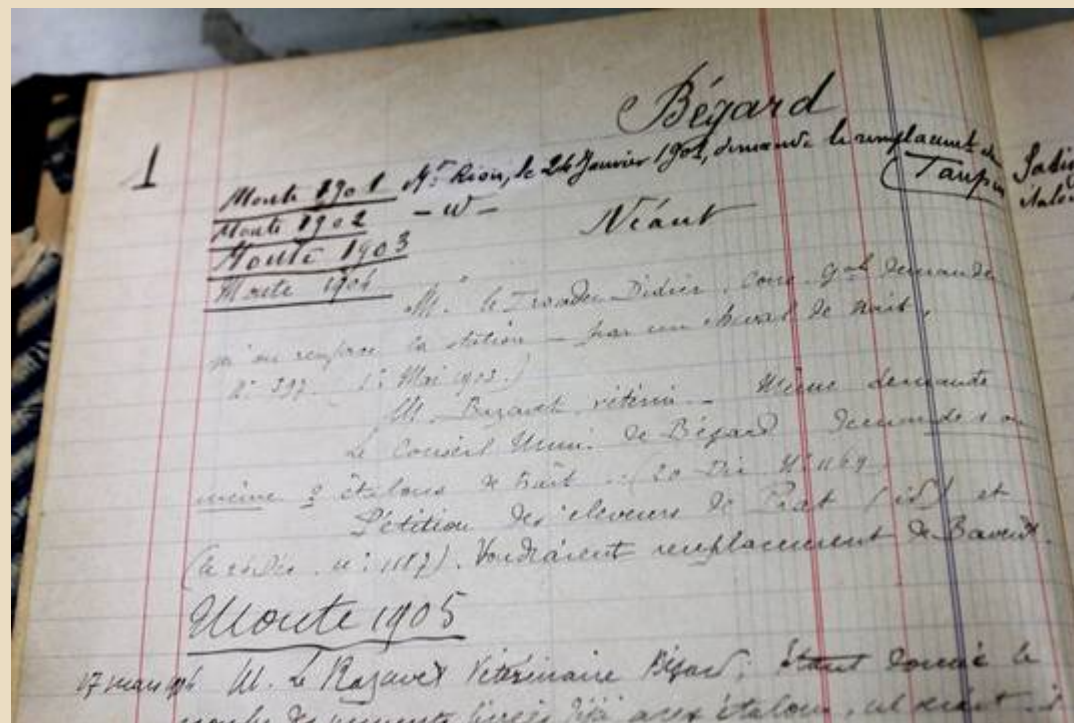 Bégard
1
Monte 1901 Mr Riou, le 24 Janvier 1901, demande le remplacement de Taupin
Monte 1902 - id -
Monte 1903 Néant
Monte 1904
M. le Didier, Cons. Gal demande
qu'on remplace la station - par un cheval de trait,
N: 397. (1er Mai 1903.)
M. vétérin. - Même demande
Le Conseil Muni. de Bégard demande 1 ou
même 2 étalons de trait (20 Déc N: 1169)
Pétition des éleveurs de Prat (id) et
(le Déc. n: 1187). Voudraient remplacement de
Monte 1905
17 mars M. Le Vétérinaire Bégard; étant donné le
nombre de juments déjà aux étalons,